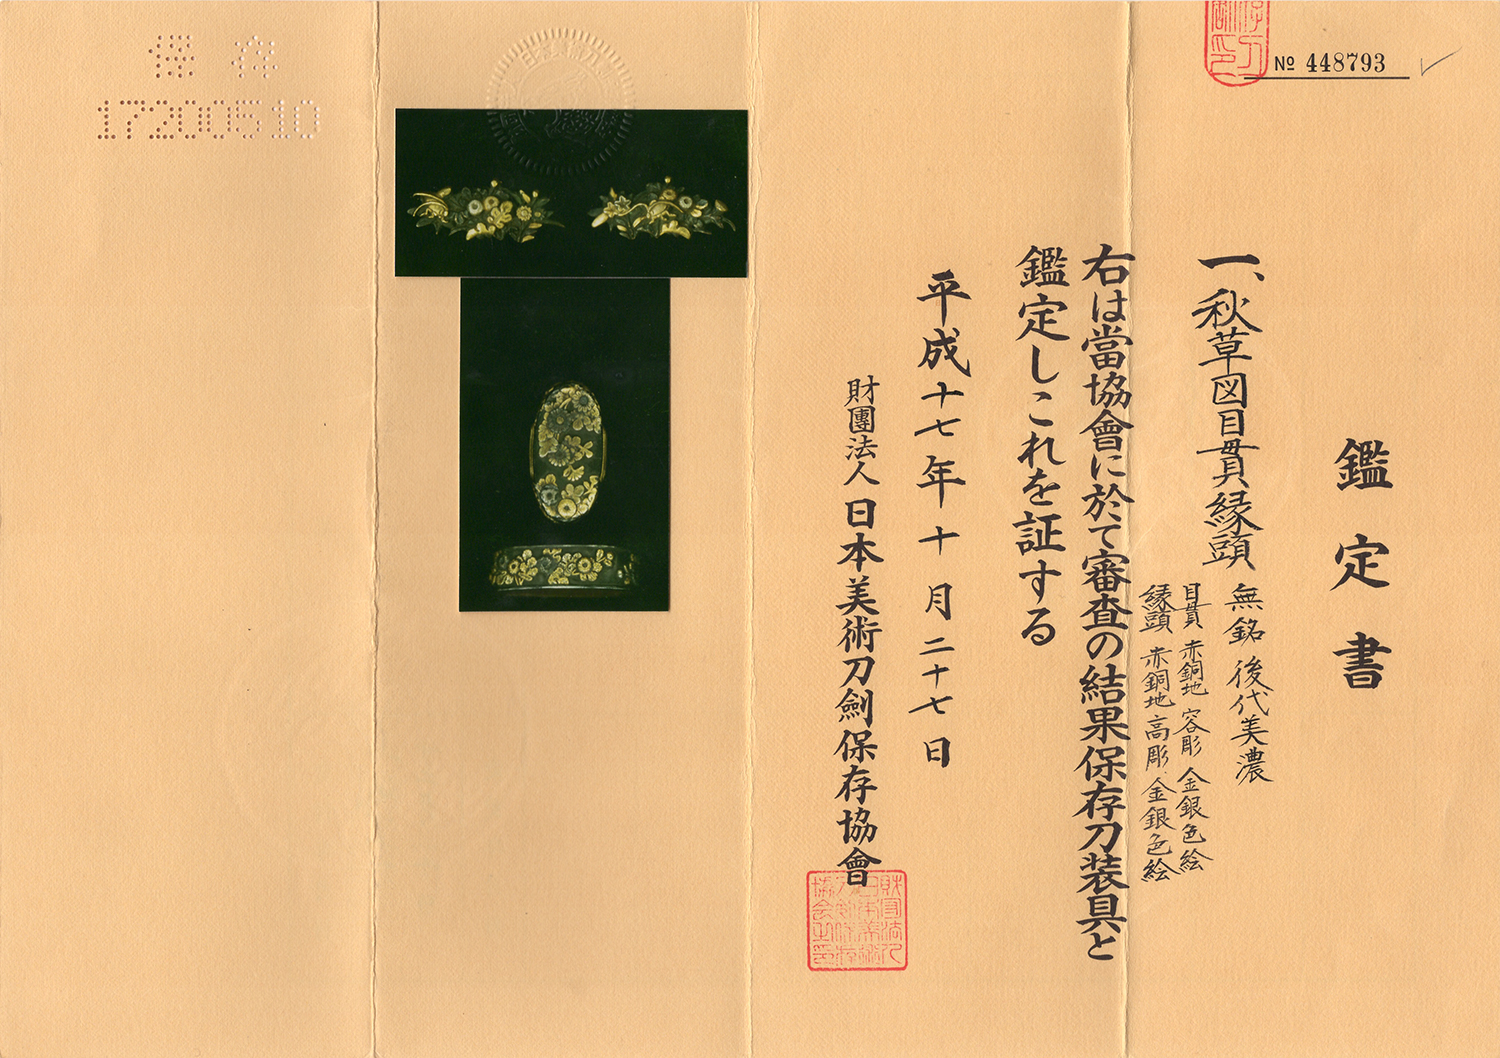 № 448793
鑑定書
一、秋草図目貫縁頭
無銘 後代美濃
目貫 赤銅地 容彫 金銀色絵
縁頭 赤銅地 高彫 金銀色絵
右は當協會に於て審査の結果保存刀装具と
鑑定しこれを証する
平成十七年十月二十七日
財團法人 日本美術刀劍保存協會
保存
17200510